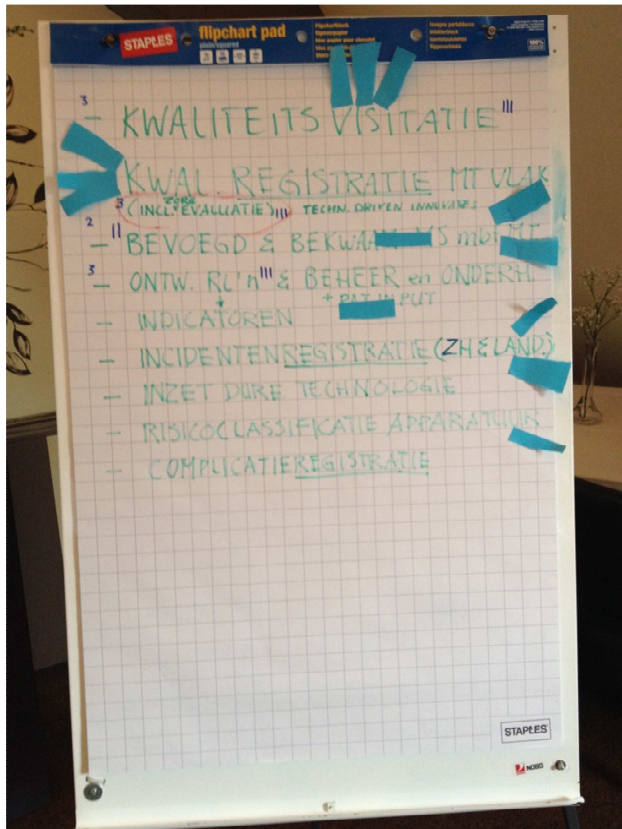 STAPLES flipchart pad
plain/squared
100%
3 - KWALITEITS VISITATIE III
KWAL. REGISTRATIE MT VLAK
3 (INCL. ZORG EVALUATIE) III TECHN. DRIVEN INNOVATIES
2 - II BEVOEGD & BEKWAAM MS mbt MT
3 - ONTW. RL'n III & BEHEER en ONDERH.
+ PAT INPUT
- INDICATOREN
- INCIDENTENREGISTRATIE (ZH & LAND.)
- INZET DURE TECHNOLOGIE
- RISICOCLASSIFICATIE APPARATUUR
- COMPLICATIEREGISTRATIE
STAPLES
NOBO